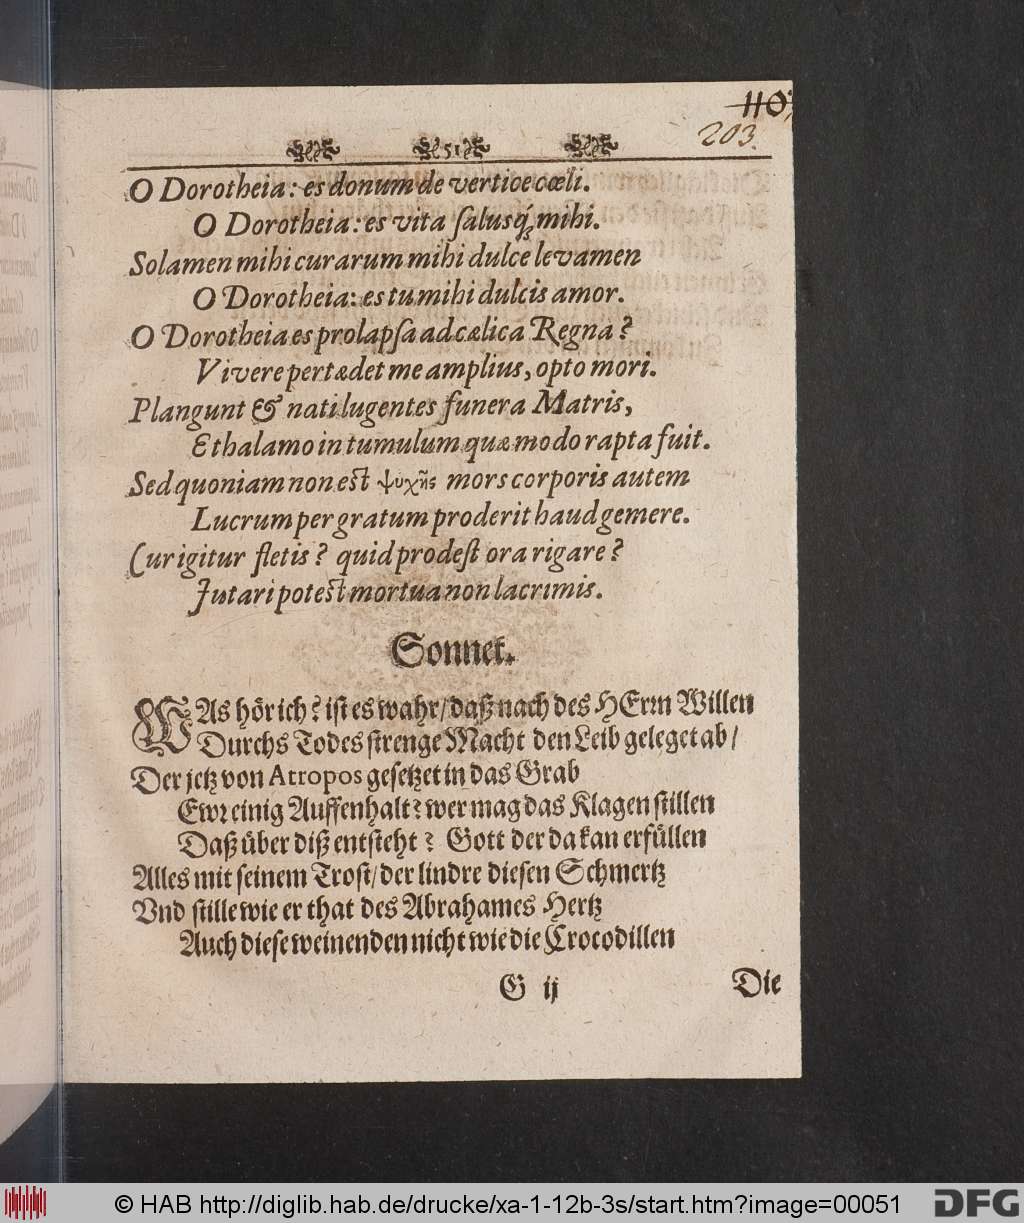 110
203.
51
O Dorotheia: es donum de vertice cœli.
O Dorotheia: es vita ſalusq́; mihi.
Solamen mihi curarum mihi dulce levamen
O Dorotheia: es tu mihi dulcis amor.
O Dorotheia es prolapſa ad cælica Regna?
Vivere pertædet me amplius, opto mori.
Plangunt & nati lugentes funera Matris,
E thalamo in tumulum quæ modo rapta fuit.
Sed quoniam non est ψυχῆς mors corporis autem
Lucrum pergratum proderit haud gemere.
Cur igitur fletis? quid prodeſt ora rigare?
Jutari potest mortua non lacrimis.
Sonnet.
WAs hör ich? iſt es wahr/ daß nach des HErrn Willen
Durchs Todes ſtrenge Macht den Leib geleget ab/
Der jetz von Atropos geſetzet in das Grab
Ewr einig Auffenhalt? wer mag das Klagen ſtillen
Daß über diß entſteht? Gott der da kan erfüllen
Alles mit ſeinem Troſt/ der lindre dieſen Schmertz
Vnd ſtille wie er that des Abrahames Hertz
Auch dieſe weinenden nicht wie die Crocodillen
G ij
Die
© HAB http://diglib.hab.de/drucke/xa-1-12b-3s/start.htm?image=00051
DFG